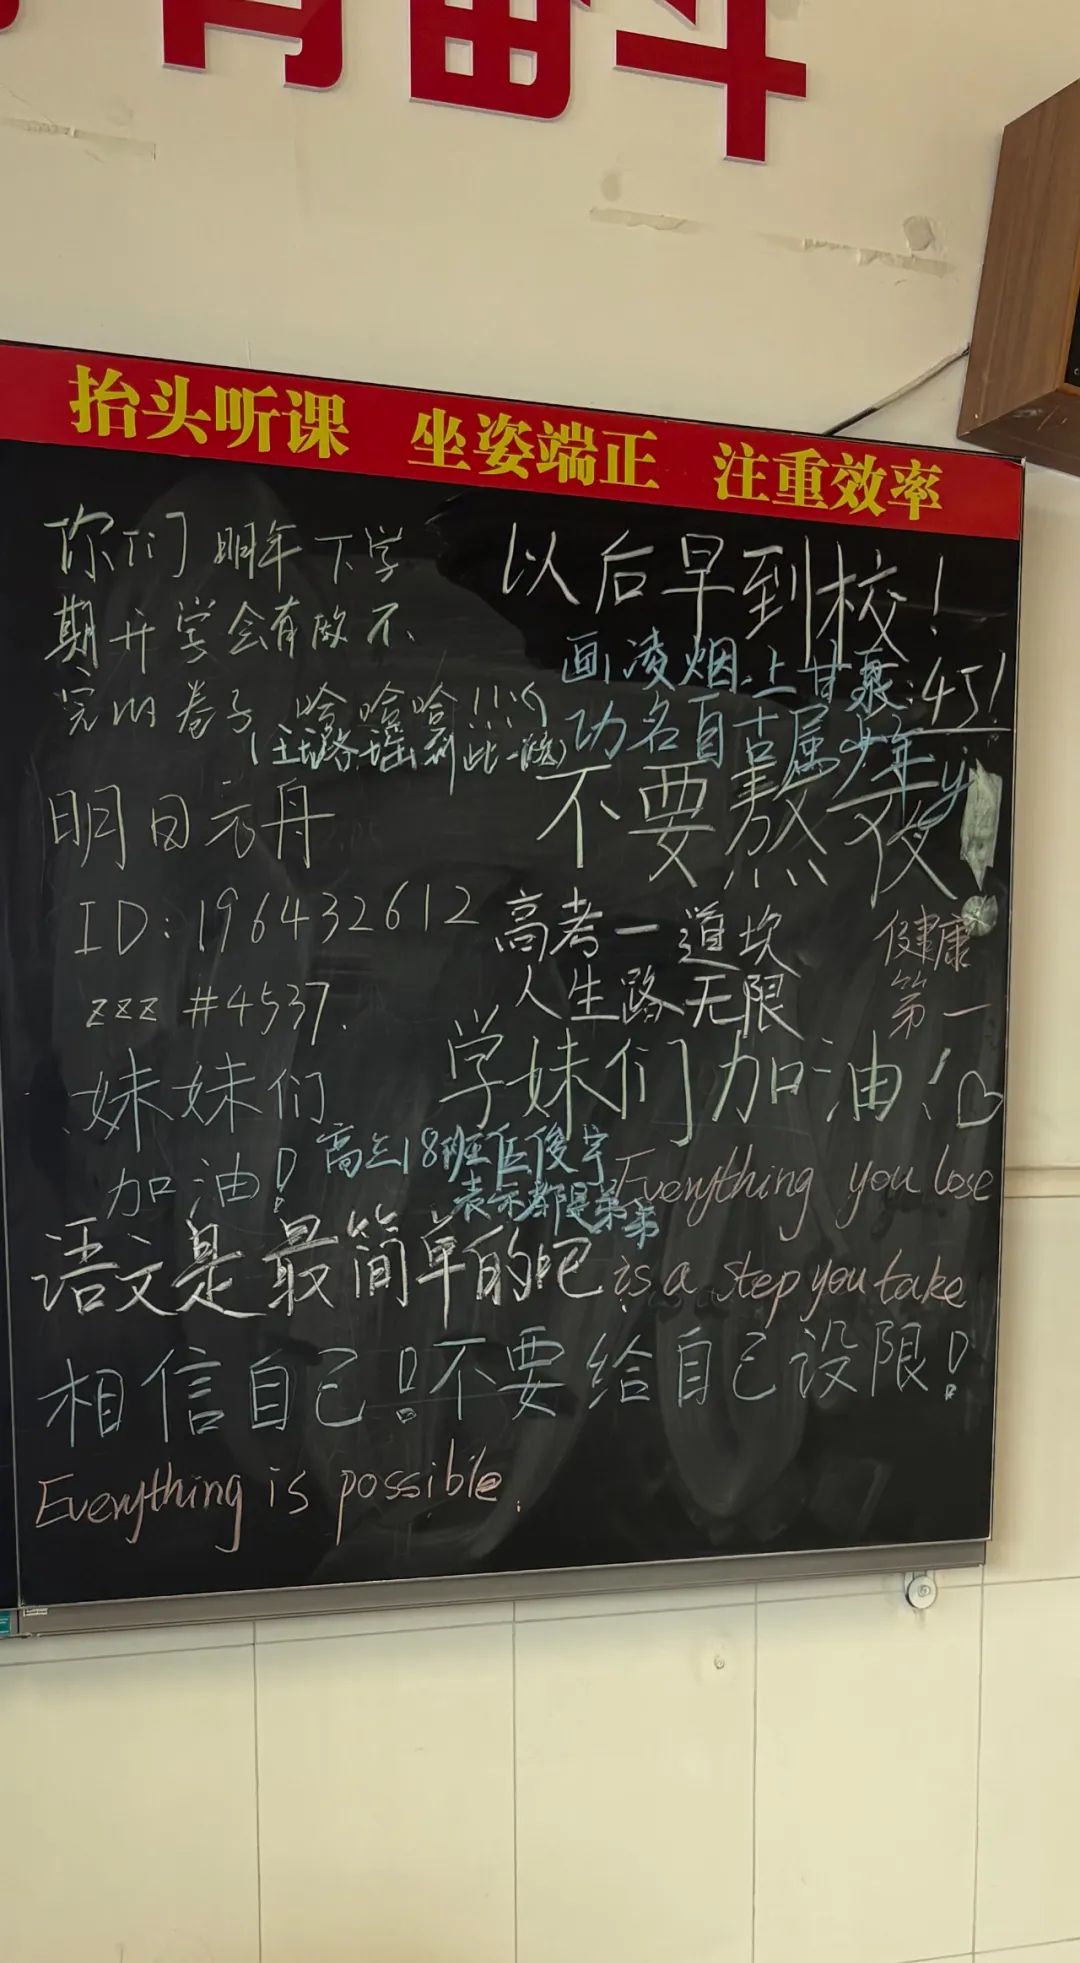 抬头听课 坐姿端正 注重效率
你们明年下学
期开学会有做不
完的卷子 哈哈哈!!!
以后早到校!
画凌烟,上甘泉:
功名自古属少年
不要熬夜!
明日方舟
ID:196432612
zzz #4537.
高考一道坎
人生路无限
健康
第一
妹妹们
加油!
学妹们加油!♡
高三18班伍俊宇
表示都是弟弟
Everything you lose
is a step you take
语文是最简单的吧
相信自己!不要给自己设限!
Everything is possible.